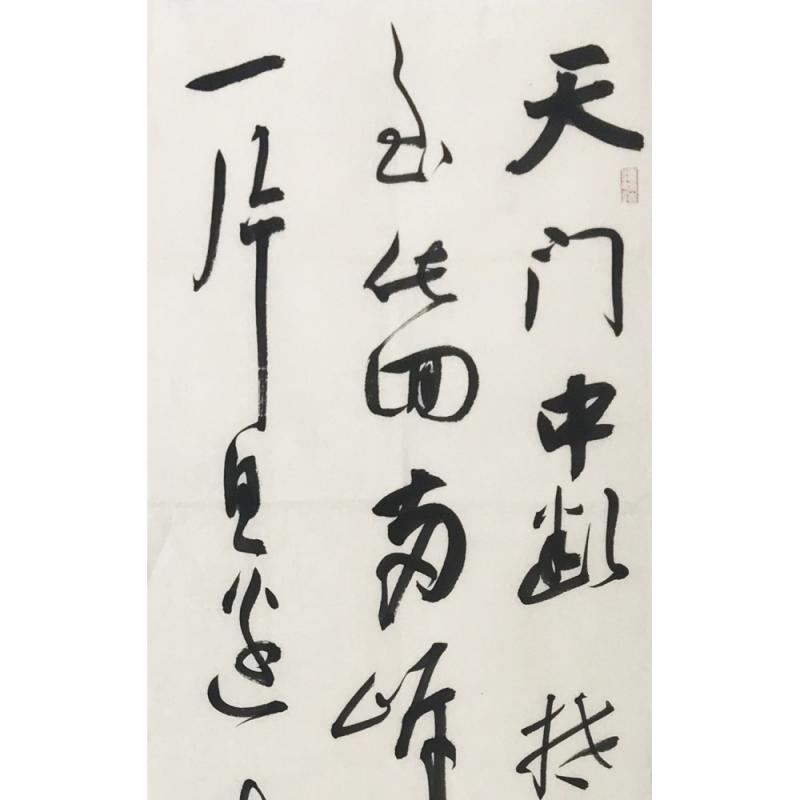 天门中断
至此回两岸
一片日边